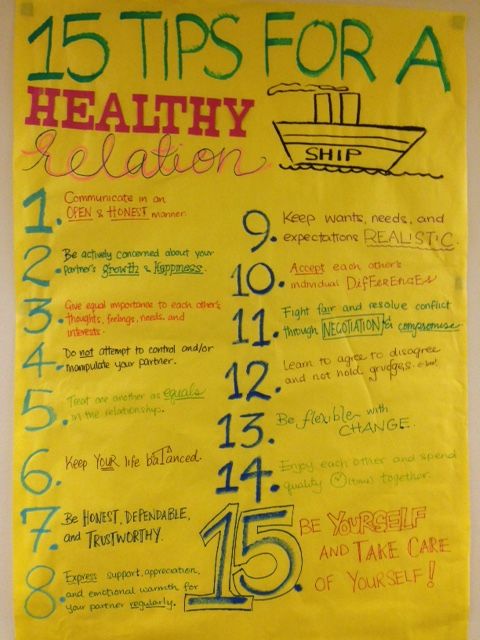 15 TIPS FOR A
HEALTHY
relation
SHIP
1. Communicate in an
OPEN & HONEST manner.
2. Be actively concerned about your
partner's growth & happiness.
3. Give equal importance to each other's
thoughts, feelings, needs, and
interests.
4. Do not attempt to control and/or
manipulate your partner.
5. Treat one another as equals
in the relationship.
6. Keep YOUR life balanced.
7. Be HONEST, DEPENDABLE,
and TRUSTWORTHY.
8. Express support, appreciation,
and emotional warmth for
your partner regularly.
9. Keep wants, needs, and
expectations REALISTIC.
10. Accept each other's
individual DIFFERENCES
11. Fight fair and resolve conflict
through NEGOTIATION & compromise.
12. Learn to agree to disagree
and not hold grudges.
13. Be flexible with
CHANGE.
14. Enjoy each other and spend
quality (time) together.
15. BE YOURSELF
AND TAKE CARE
OF YOURSELF!